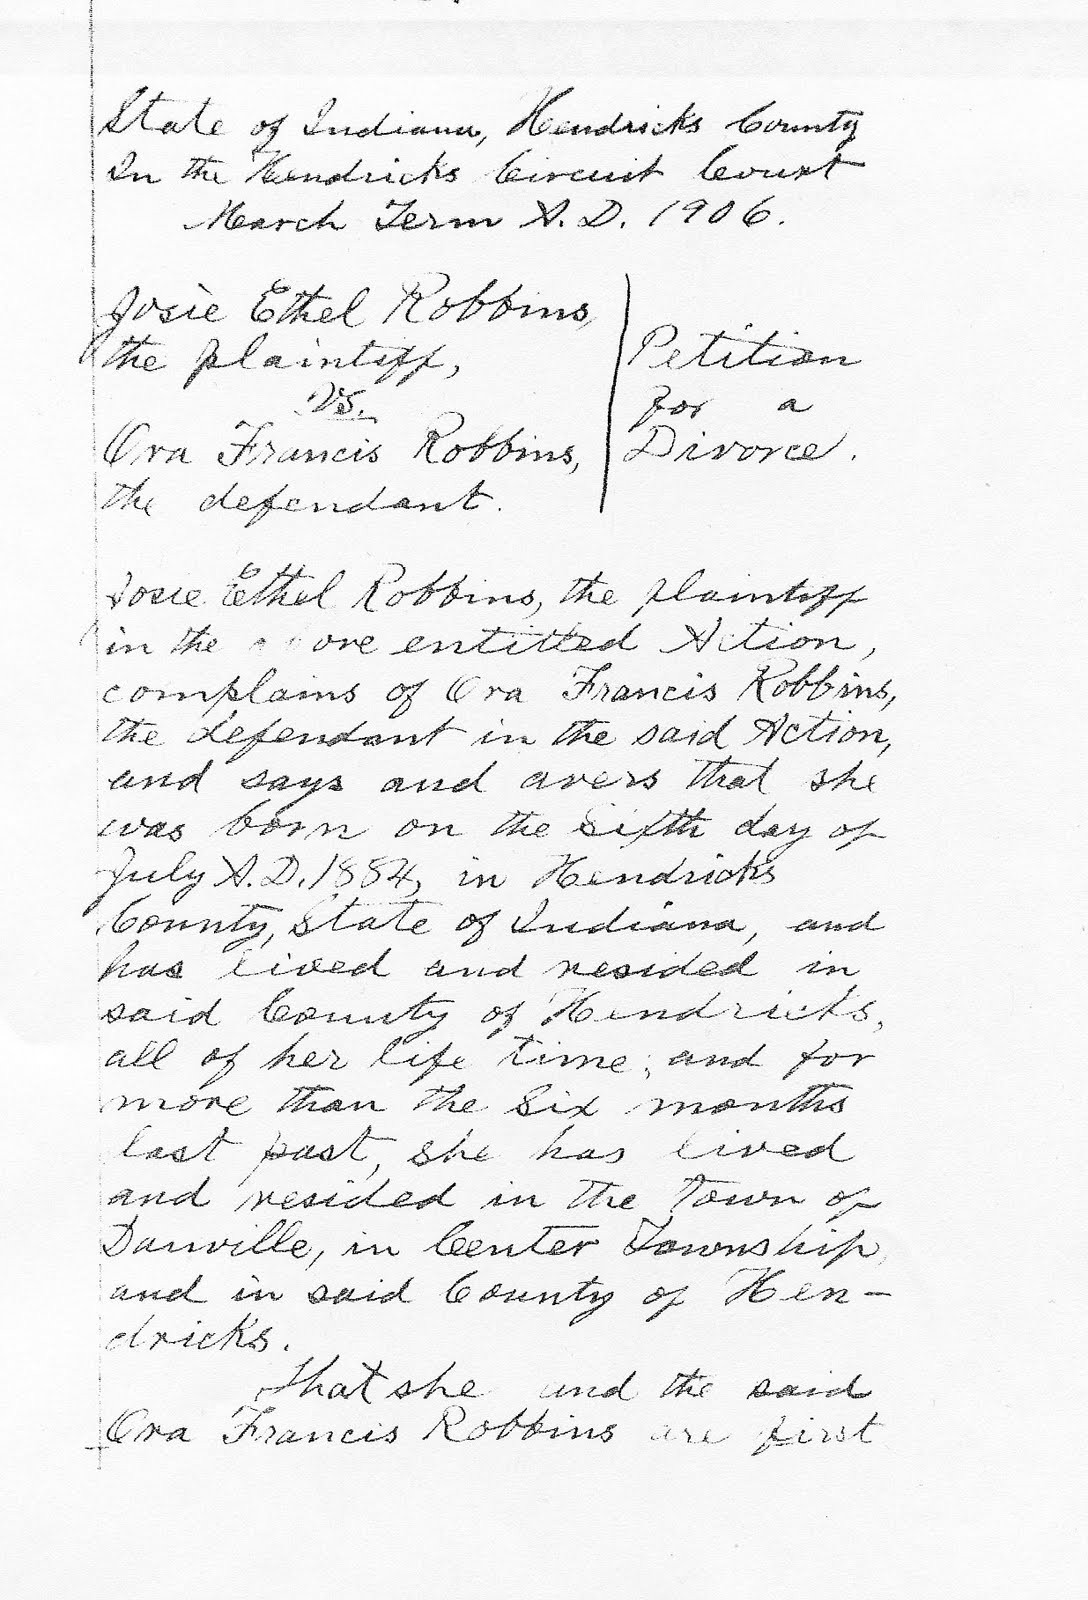 State of Indiana, Hendricks County
In the Hendricks Circuit Court
March Term A.D. 1906.
Josie Ethel Robbins,
the plaintiff,
vs.
Ora Francis Robbins,
the defendant.
Petition
for a
Divorce.
Josie Ethel Robbins, the plaintiff
in the above entitled Action,
complains of Ora Francis Robbins,
the defendant in the said Action,
and says and avers that she
was born on the Sixth day of
July A.D. 1884, in Hendricks
County, State of Indiana, and
has lived and resided in
said County of Hendricks,
all of her life time; and for
more than the Six months
last past, she has lived
and resided in the Town of
Danville, in Center Township,
and in said County of Hen-
dricks.
That she and the said
Ora Francis Robbins are first